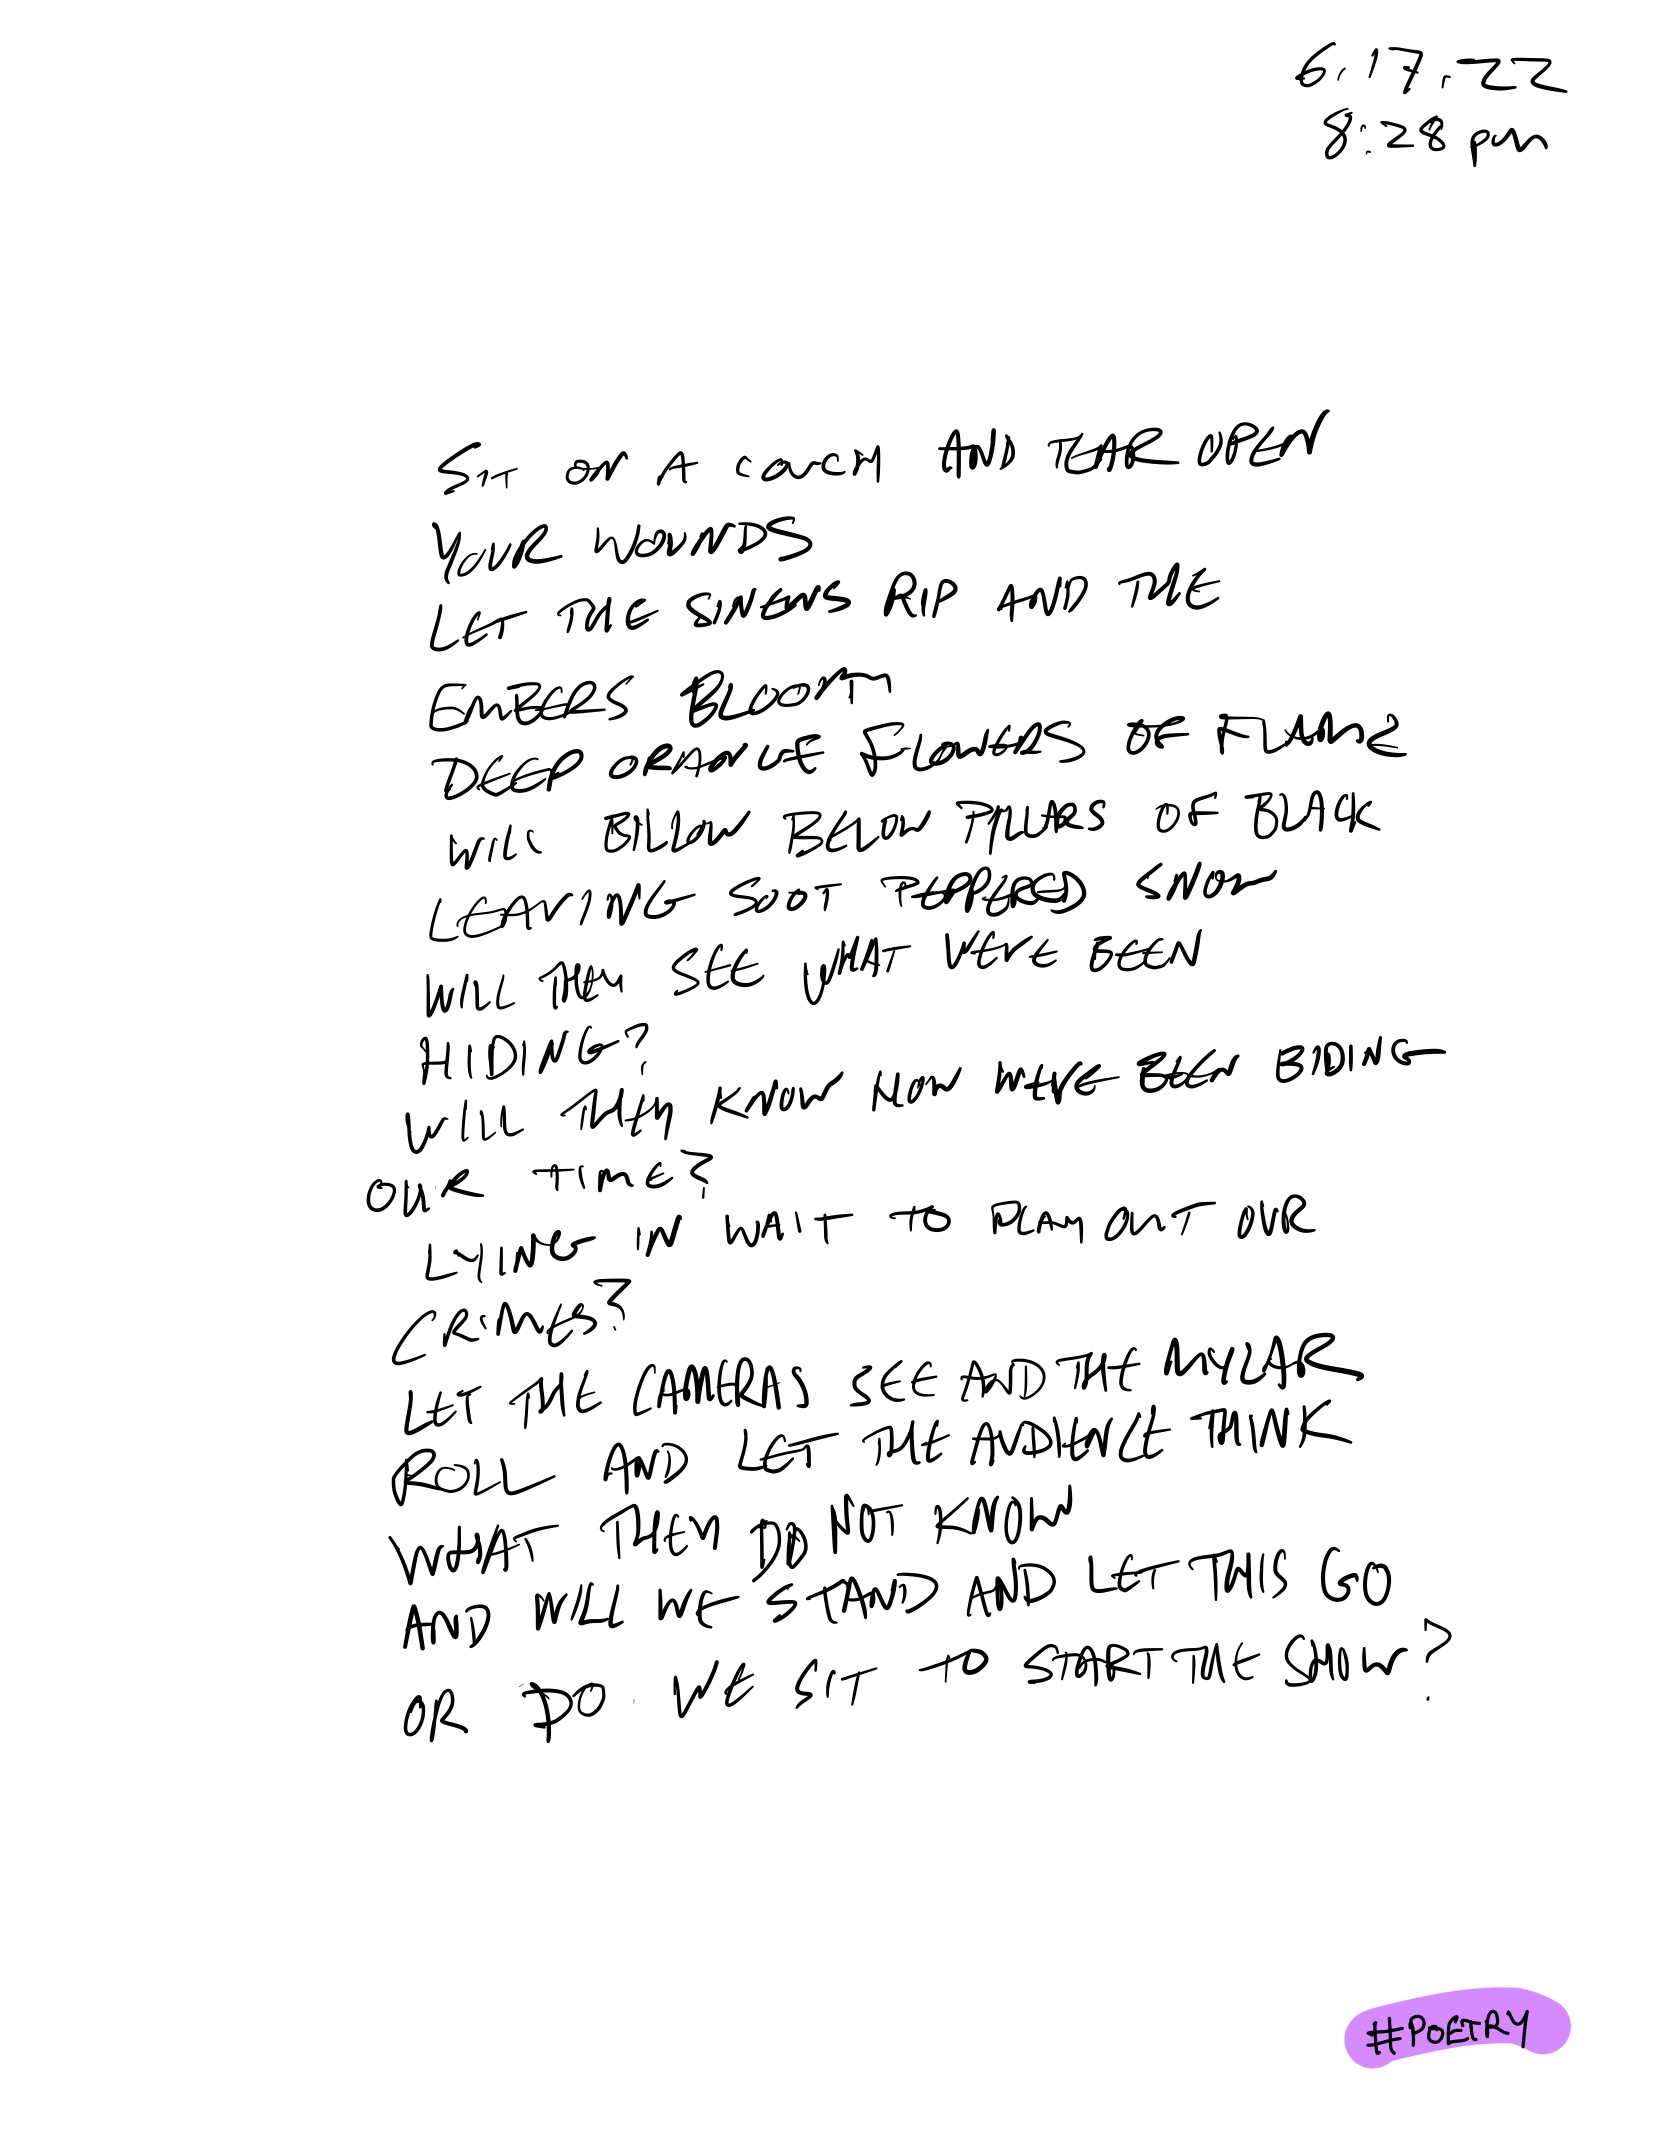 6.17.22
8:28 pm
SIT ON A COUCH AND TEAR OPEN
YOUR WOUNDS
LET THE SINEWS RIP AND THE
EMBERS BLOOM
DEEP ORANGE FLOWERS OF FLAME
WILL BILLOW BELOW PILLARS OF BLACK
LEAVING SOOT PEPPERED SNOW
WILL THEY SEE WHAT WEVE BEEN
HIDING?
WILL THEY KNOW HOW WEVE BEEN BIDING
OUR TIME?
LYING IN WAIT TO PLAY OUT OUR
CRIMES?
LET THE CAMERAS SEE AND THE MYLAR
ROLL AND LET THE AUDIENCE THINK
WHAT THEY DO NOT KNOW
AND WILL WE STAND AND LET THIS GO
OR DO WE SIT TO START THE SHOW?
#POETRY